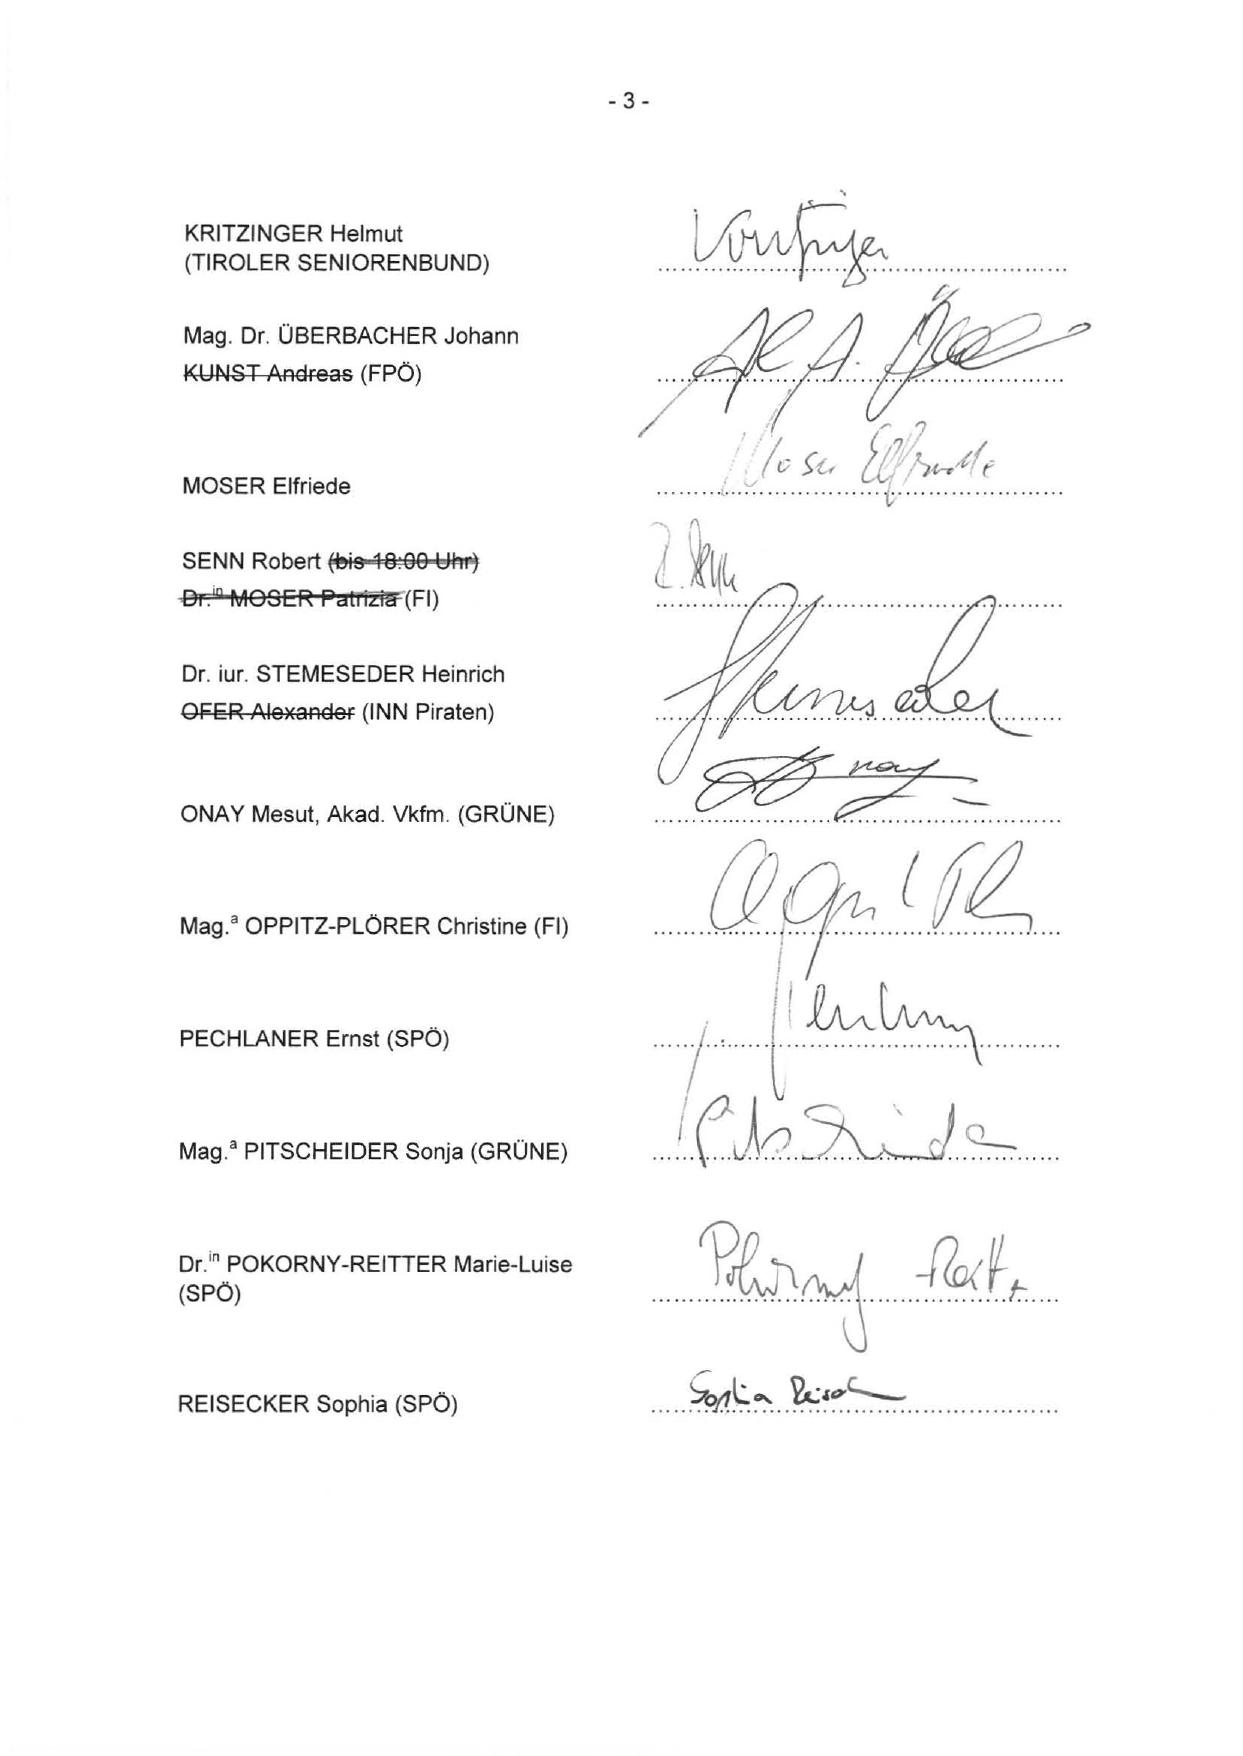 - 3 -
KRITZINGER Helmut
(TIROLER SENIORENBUND)
Mag. Dr. ÜBERBACHER Johann
KUNST Andreas (FPÖ)
Moser Elfriede
MOSER Elfriede
SENN Robert (bis 18:00 Uhr)
R. Senn
Dr.in MOSER Patrizia (FI)
Dr. iur. STEMESEDER Heinrich
Stemeseder
OFER Alexander (INN Piraten)
ONAY Mesut, Akad. Vkfm. (GRÜNE)
Mag.a OPPITZ-PLÖRER Christine (FI)
PECHLANER Ernst (SPÖ)
Mag.a PITSCHEIDER Sonja (GRÜNE)
Dr.in POKORNY-REITTER Marie-Luise
(SPÖ)
REISECKER Sophia (SPÖ)